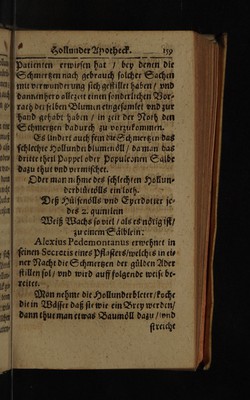 Hollunder Apotheck. 159
Patienten erwiesen hat / bey denen die
Schmertzen nach gebrauch solcher Sachen
mit verwunderung sich gestillet haben / und
dannenhero allezeit einen sonderlichen Vor-
rath derselben Blumen eingesamlet und zur
Hand gehabt haben / in zeit der Noth den
Schmertzen dadurch zu vorzukommen.
Es lindert auch fein die Schmertzen das
schlechte Hollunder blumenöll / da man das
dritte theil Pappel oder Populeonen Salbe
dazu thut und vermischet.
Oder man nehme des schlechten Hollun-
derblüetölls ein loth.
Deß Hüssenölls und Eyerdotter je-
des 2. quintlein
Weiß Wachs so viel / als es nötig ist /
zu einem Sälblein:
Alexius Pedemontanus erwehnet in
seinen Secretis eines Pflasters / welches in ei-
ner Nacht die Schmertzen der gülden Ader
stillen sol / und wird auff folgende weise be-
reitet.
Man nehme die Hollunderbleter / koche
die in Wasser daß sie wie ein Brey werden /
dann thut man etwas Baumöll dazu / und
streicht